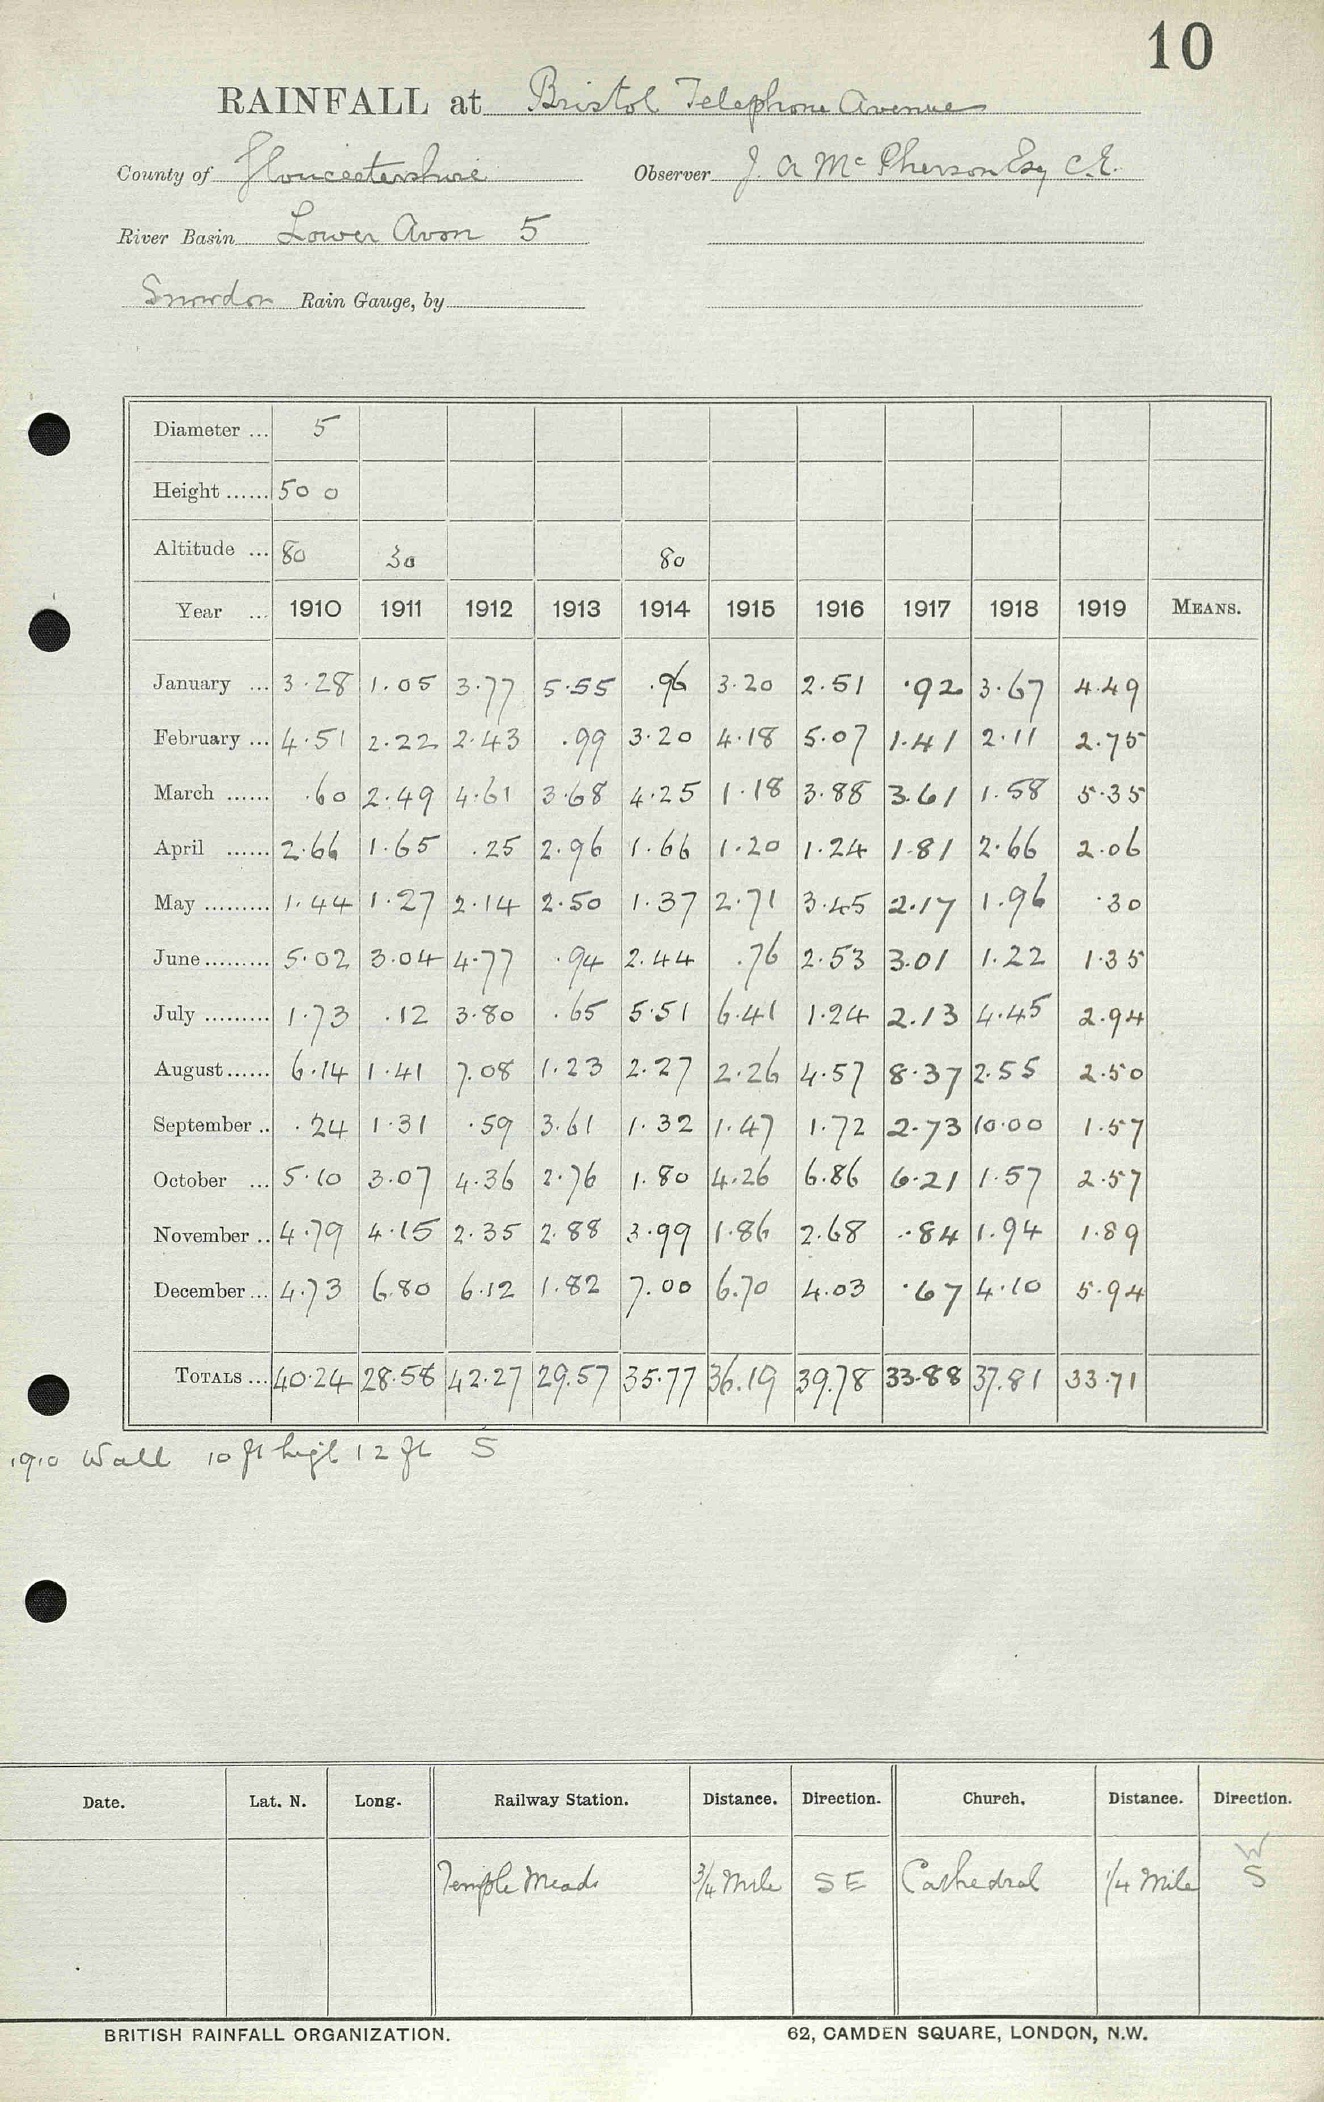 10
RAINFALL at Bristol Telephone Avenue
County of Gloucestershire Observer J. A McPherson Esq C.E.
River Basin Lower Avon 5
Snowdon Rain Gauge, by
Diameter ... 5
Height ...... 50 0
Altitude ... 80 30 80
Year ... 1910 1911 1912 1913 1914 1915 1916 1917 1918 1919 MEANS.
January ... 3.28 1.05 3.77 5.55 .96 3.20 2.51 .92 3.67 4.49
February ... 4.51 2.22 2.43 .99 3.20 4.18 5.07 1.41 2.11 2.75
March ...... .60 2.49 4.61 3.68 4.25 1.18 3.88 3.61 1.58 5.35
April ...... 2.66 1.65 .25 2.96 1.66 1.20 1.24 1.81 2.66 2.06
May ......... 1.44 1.27 2.14 2.50 1.37 2.71 3.45 2.17 1.96 .30
June ......... 5.02 3.04 4.77 .94 2.44 .76 2.53 3.01 1.22 1.35
July ......... 1.73 .12 3.80 .65 5.51 6.41 1.24 2.13 4.45 2.94
August ...... 6.14 1.41 7.08 1.23 2.27 2.26 4.57 8.37 2.55 2.50
September .. .24 1.31 .59 3.61 1.32 1.47 1.72 2.73 10.00 1.57
October ... 5.10 3.07 4.36 2.76 1.80 4.26 6.86 6.21 1.57 2.57
November .. 4.79 4.15 2.35 2.88 3.99 1.86 2.68 .84 1.94 1.89
December ... 4.73 6.80 6.12 1.82 7.00 6.70 4.03 .67 4.10 5.94
TOTALS ... 40.24 28.58 42.27 29.57 35.77 36.19 39.78 33.88 37.81 33.71
1910 Wall 10 ft high 12 ft S
Date. Lat. N. Long. Railway Station. Distance. Direction. Church. Distance. Direction.
W
Temple Meads 3/4 Mile SE Cathedral 1/4 Mile S
BRITISH RAINFALL ORGANIZATION. 62, CAMDEN SQUARE, LONDON, N.W.